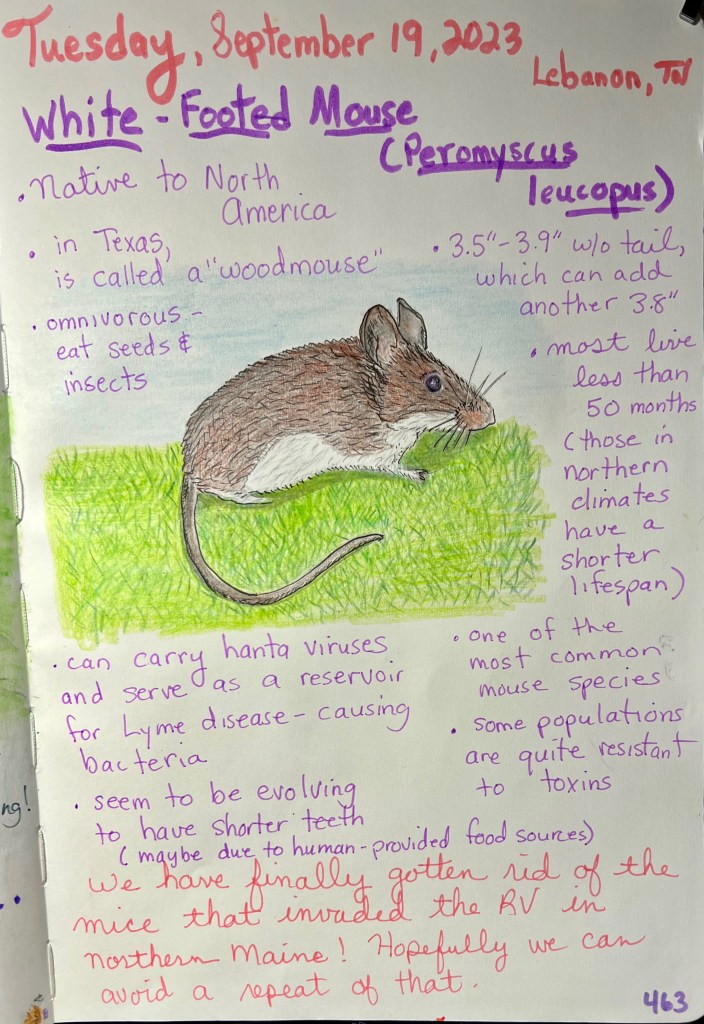 Tuesday, September 19, 2023
Lebanon, TN
White-Footed Mouse
(Peromyscus
leucopus)
• Native to North
America
• in Texas,
is called a "woodmouse"
• omnivorous -
eat seeds &
insects
• 3.5"-3.9" w/o tail,
which can add
another 3.8"
• most live
less than
50 months
(those in
northern
climates
have a
shorter
lifespan)
• can carry hanta viruses
and serve as a reservoir
for Lyme disease-causing
bacteria
• seem to be evolving
to have shorter teeth
(maybe due to human-provided food sources)
• one of the
most common
mouse species
• some populations
are quite resistant
to toxins
We have finally gotten rid of the
mice that invaded the RV in
northern Maine! Hopefully we can
avoid a repeat of that.
463
ng!